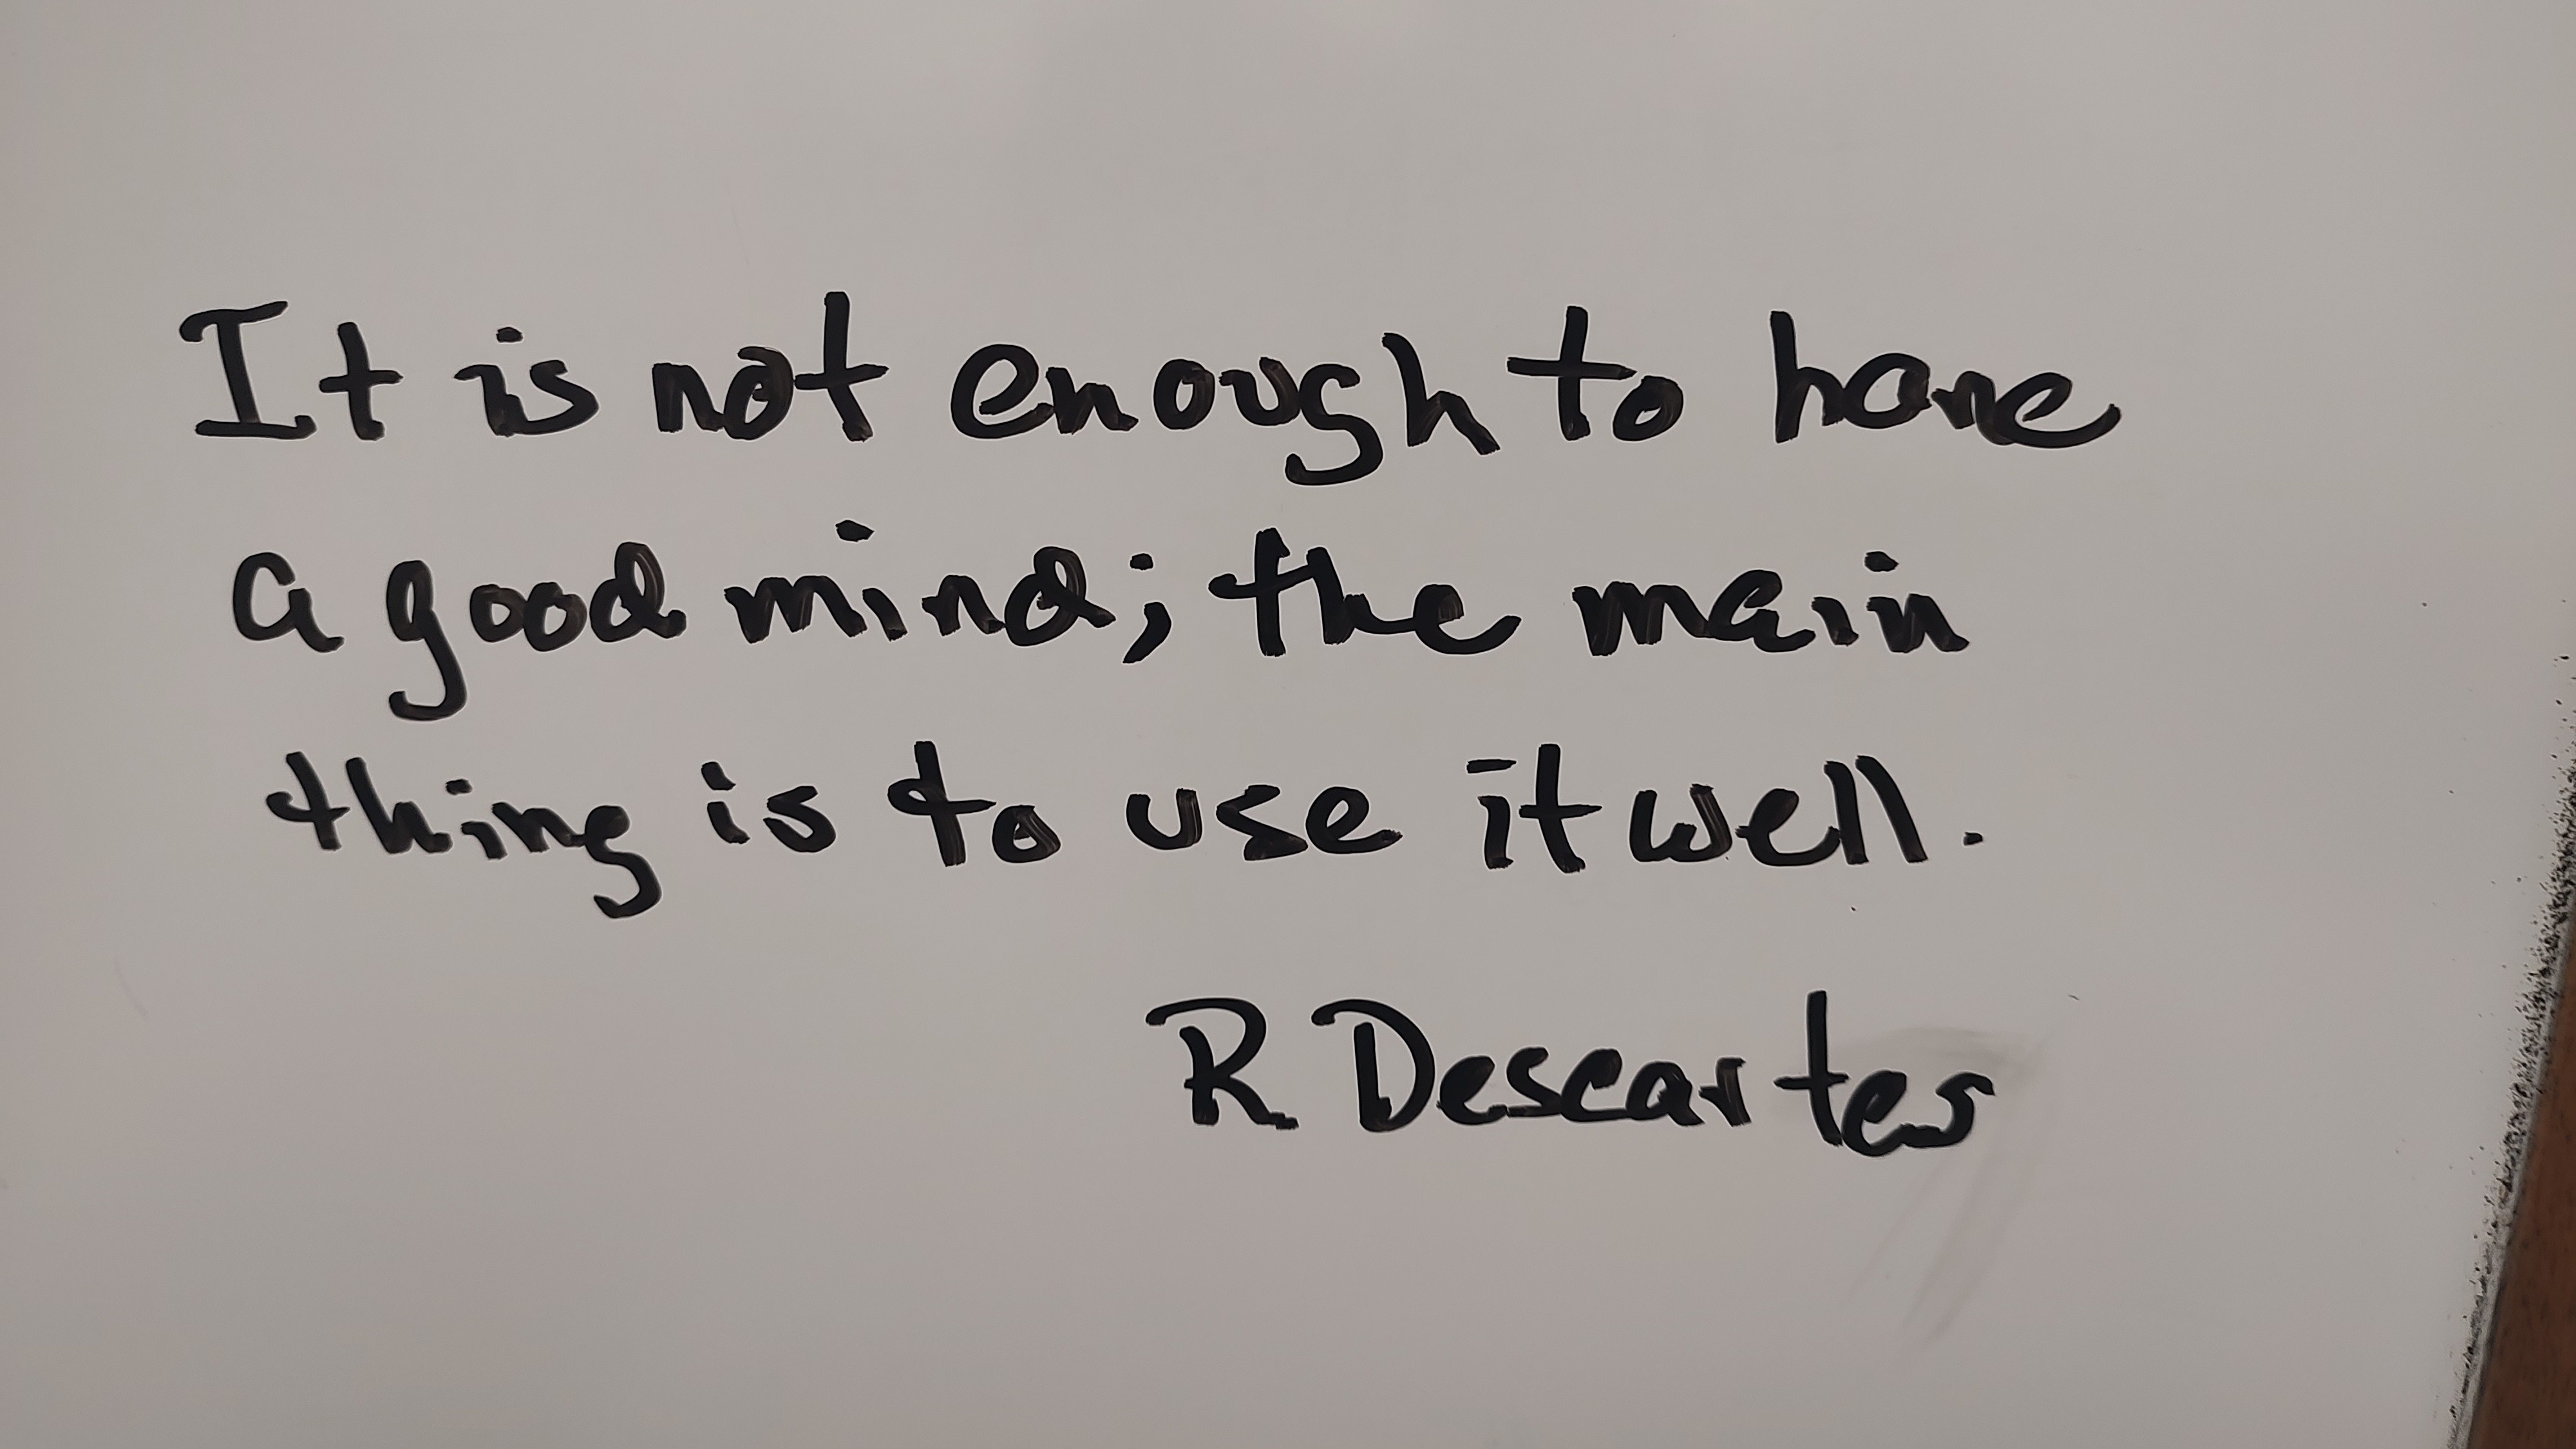 It is not enough to have
a good mind; the main
thing is to use it well.
R Descartes